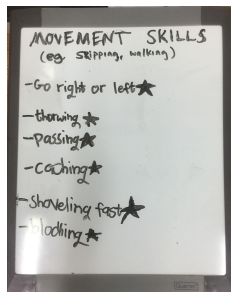 MOVEMENT SKILLS
(eg. skipping, walking)
-Go right or left★
-thorwing★
-passing★
-caching★
-Shoveling fast★
-blocking★